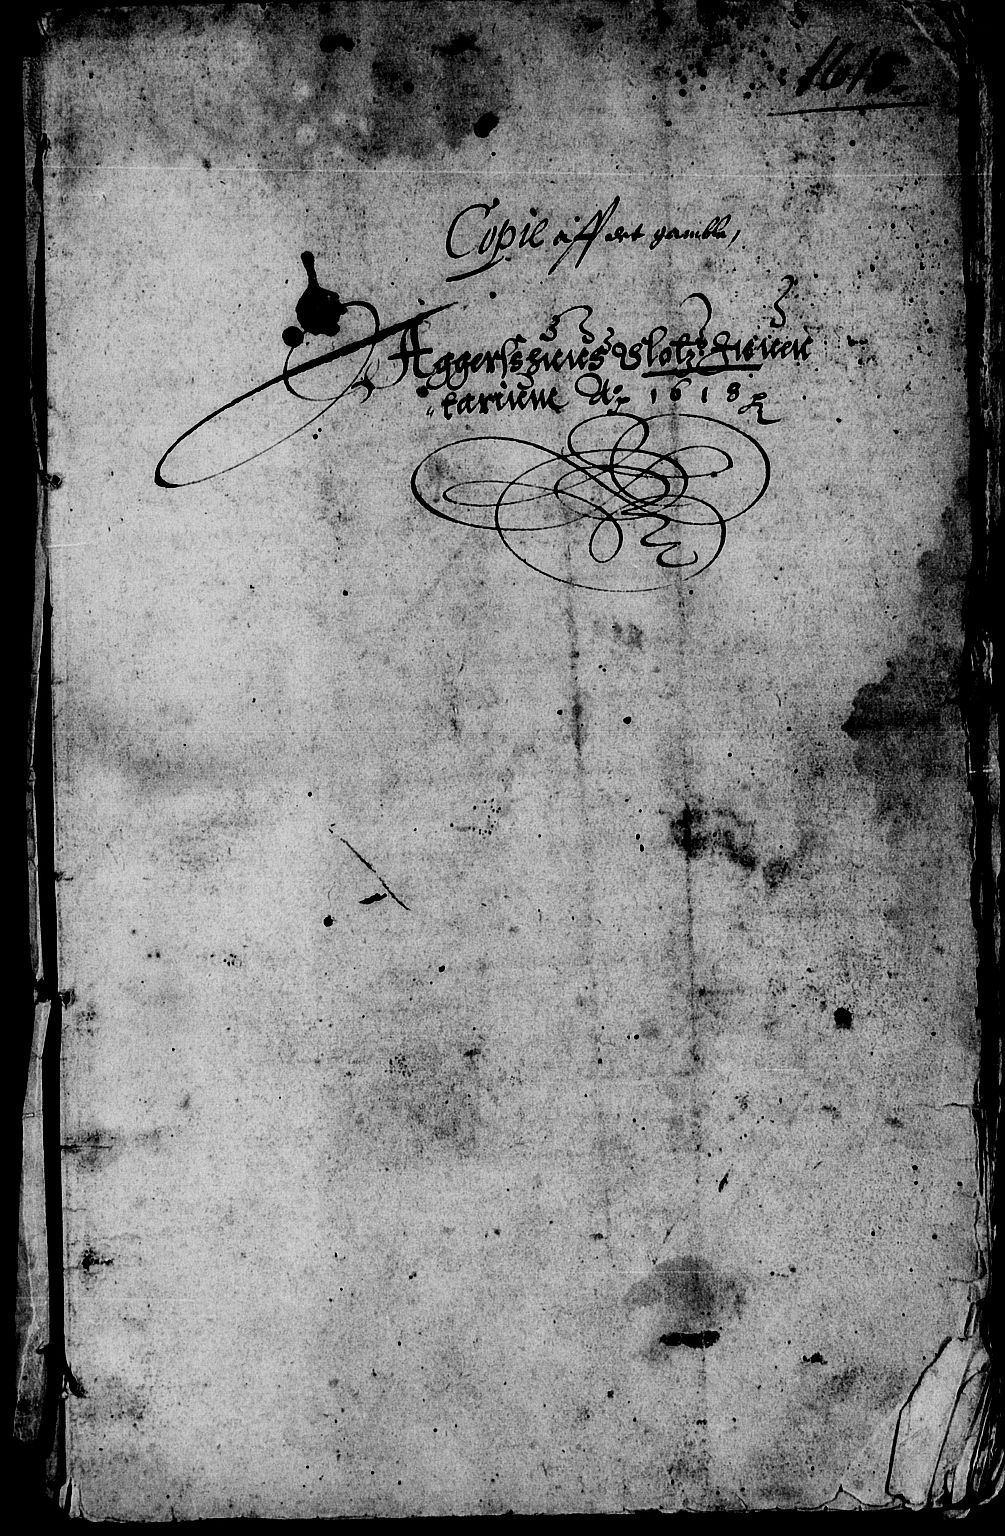 1618.
Copie aff det gamble,
Aggershuus Slotz Inuen
tarium Ao 1618